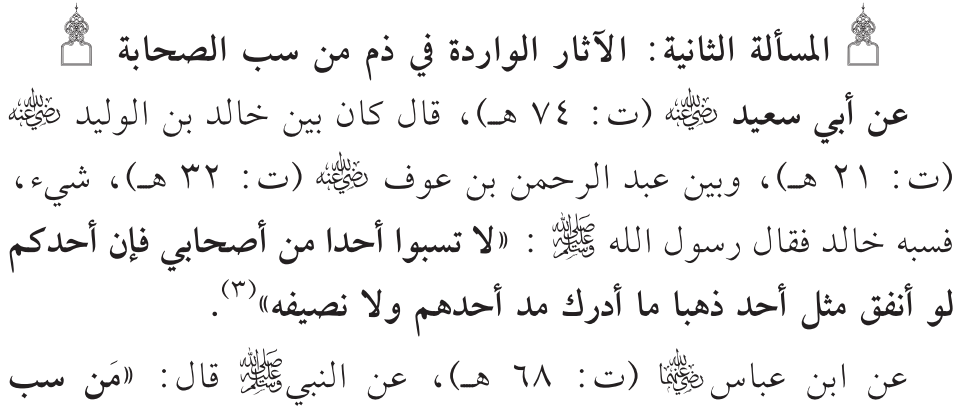 المسألة الثانية: الآثار الواردة في ذم من سب الصحابة
عن أبي سعيد رضي الله عنه (ت: ٧٤ هـ)، قال كان بين خالد بن الوليد رضي الله عنه
(ت: ٢١ هـ)، وبين عبد الرحمن بن عوف رضي الله عنه (ت: ٣٢ هـ)، شيء،
فسبه خالد فقال رسول الله ﷺ : «لا تسبوا أحدا من أصحابي فإن أحدكم
لو أنفق مثل أحد ذهبا ما أدرك مد أحدهم ولا نصيفه»(٣).
عن ابن عباس رضي الله عنهما (ت: ٦٨ هـ)، عن النبي ﷺ قال: «مَن سب